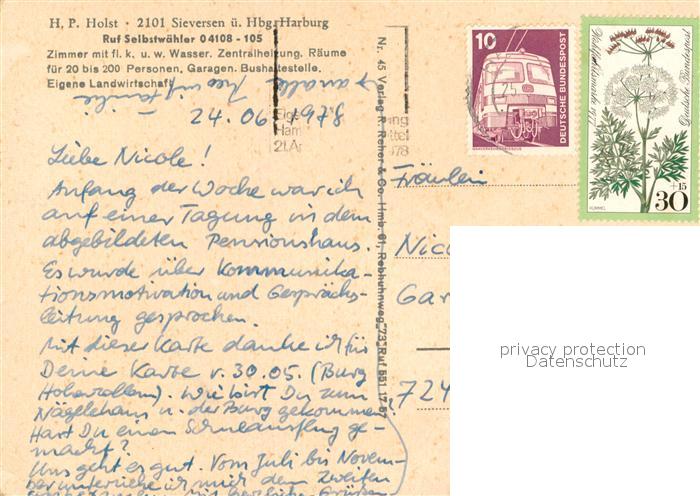 H. P. Holst · 2101 Sieversen ü. Hbg.-Harburg
Ruf Selbstwähler 04108 - 105
Zimmer mit fl. k. u. w. Wasser. Zentralheizung. Räume
für 20 bis 200 Personen. Garagen. Bushaltestelle.
Eigene Landwirtschaft
24.06.1978
Liebe Nicole!
Anfang der Woche war ich
auf einer Tagung in dem
abgebildeten Pensionshaus.
Es wurde über Kommunika-
tionsmotivation und Gesprächs-
leitung gesprochen.
Mit dieser Karte danke ich für
Deine Karte v. 30.05. (Burg
Hohenzollern). Wie bist Du zum
Nägelehaus u. der Burg gekommen?
Hast Du einen Schulausflug ge-
macht?
Uns geht es gut. Vom Juli bis Novem-
ber unterrichte ich mich dem zweiten
Nr. 45 Verlag R. Reher & Co. Hmb. 61, Rebhuhnweg 73, Ruf 551 17 57
10
DEUTSCHE BUNDESPOST
Wohlfahrtsmarke 1977
Deutsche Bundespost
30
+15
KÜMMEL
Fräulein
Nic
Gar
724
privacy protection
Datenschutz